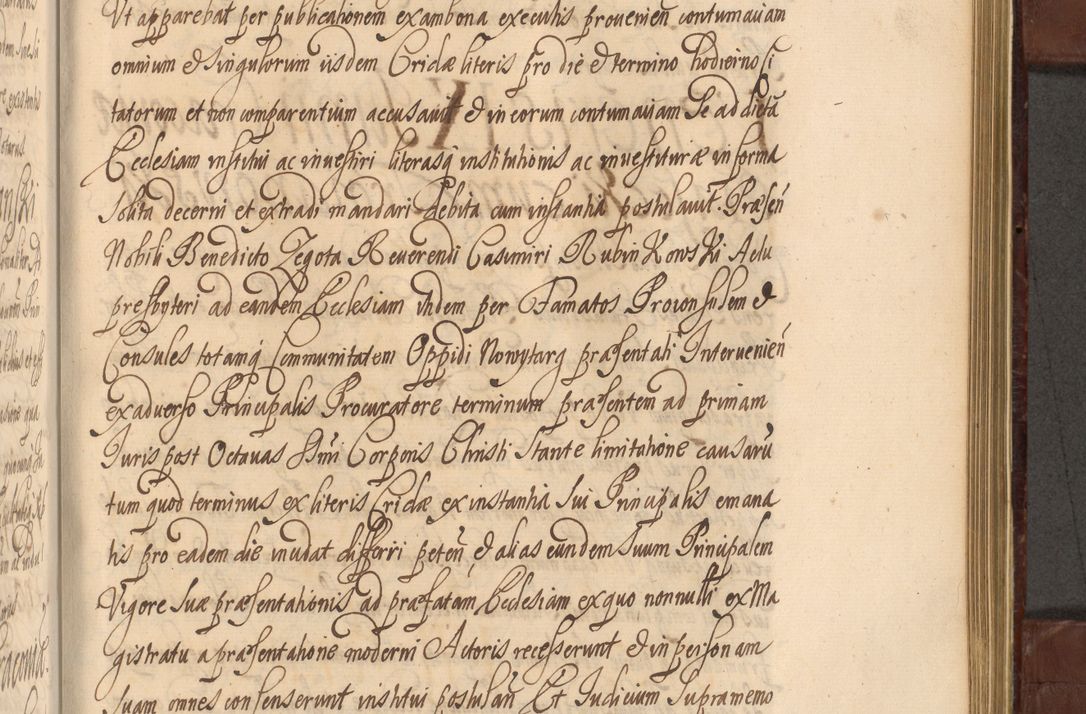 Ut apparebat per publicationem ex ambona executis provenien contumaciam
omnium et Singulorum iisdem Cridæ literis pro die et termino hodierno Ci
tatorum et non comparentium accusavit et in eorum contumaciam Se ad dictā
Ecclesiam institui ac investiri literasq institutionis ac investituræ in forma
Solita decerni et extradi mandari debita cum instantia postulavit. Præsen
Nobili Benedicto Zegota Reverendi Casimiri RubinKowsKi Actu
presbyteri ad eandem Ecclesiam itidem per Famatos Proconsulem et
Consules totamq Communitatem Oppidi Nowytarg præsentati Intervenien
ex adverso Principalis Procuratore terminum præsentem ad primam
Iuris post Octavas SSmi Corporis Christi Stante limitatione causarū
tum quod terminus ex literis Cridæ ex instantia Sui Principalis emana
tis pro eadem die incidat differri peten et alias eundem Suum Principalem
Vigore Suæ præsentationis ad præfatam Ecclesiam ex quo nonnulli ex Ma
gistratu a præsentatione moderni Actoris recesserunt et in personam
Suam omnes consenserunt institui postulan Et Iudicium Supramemo